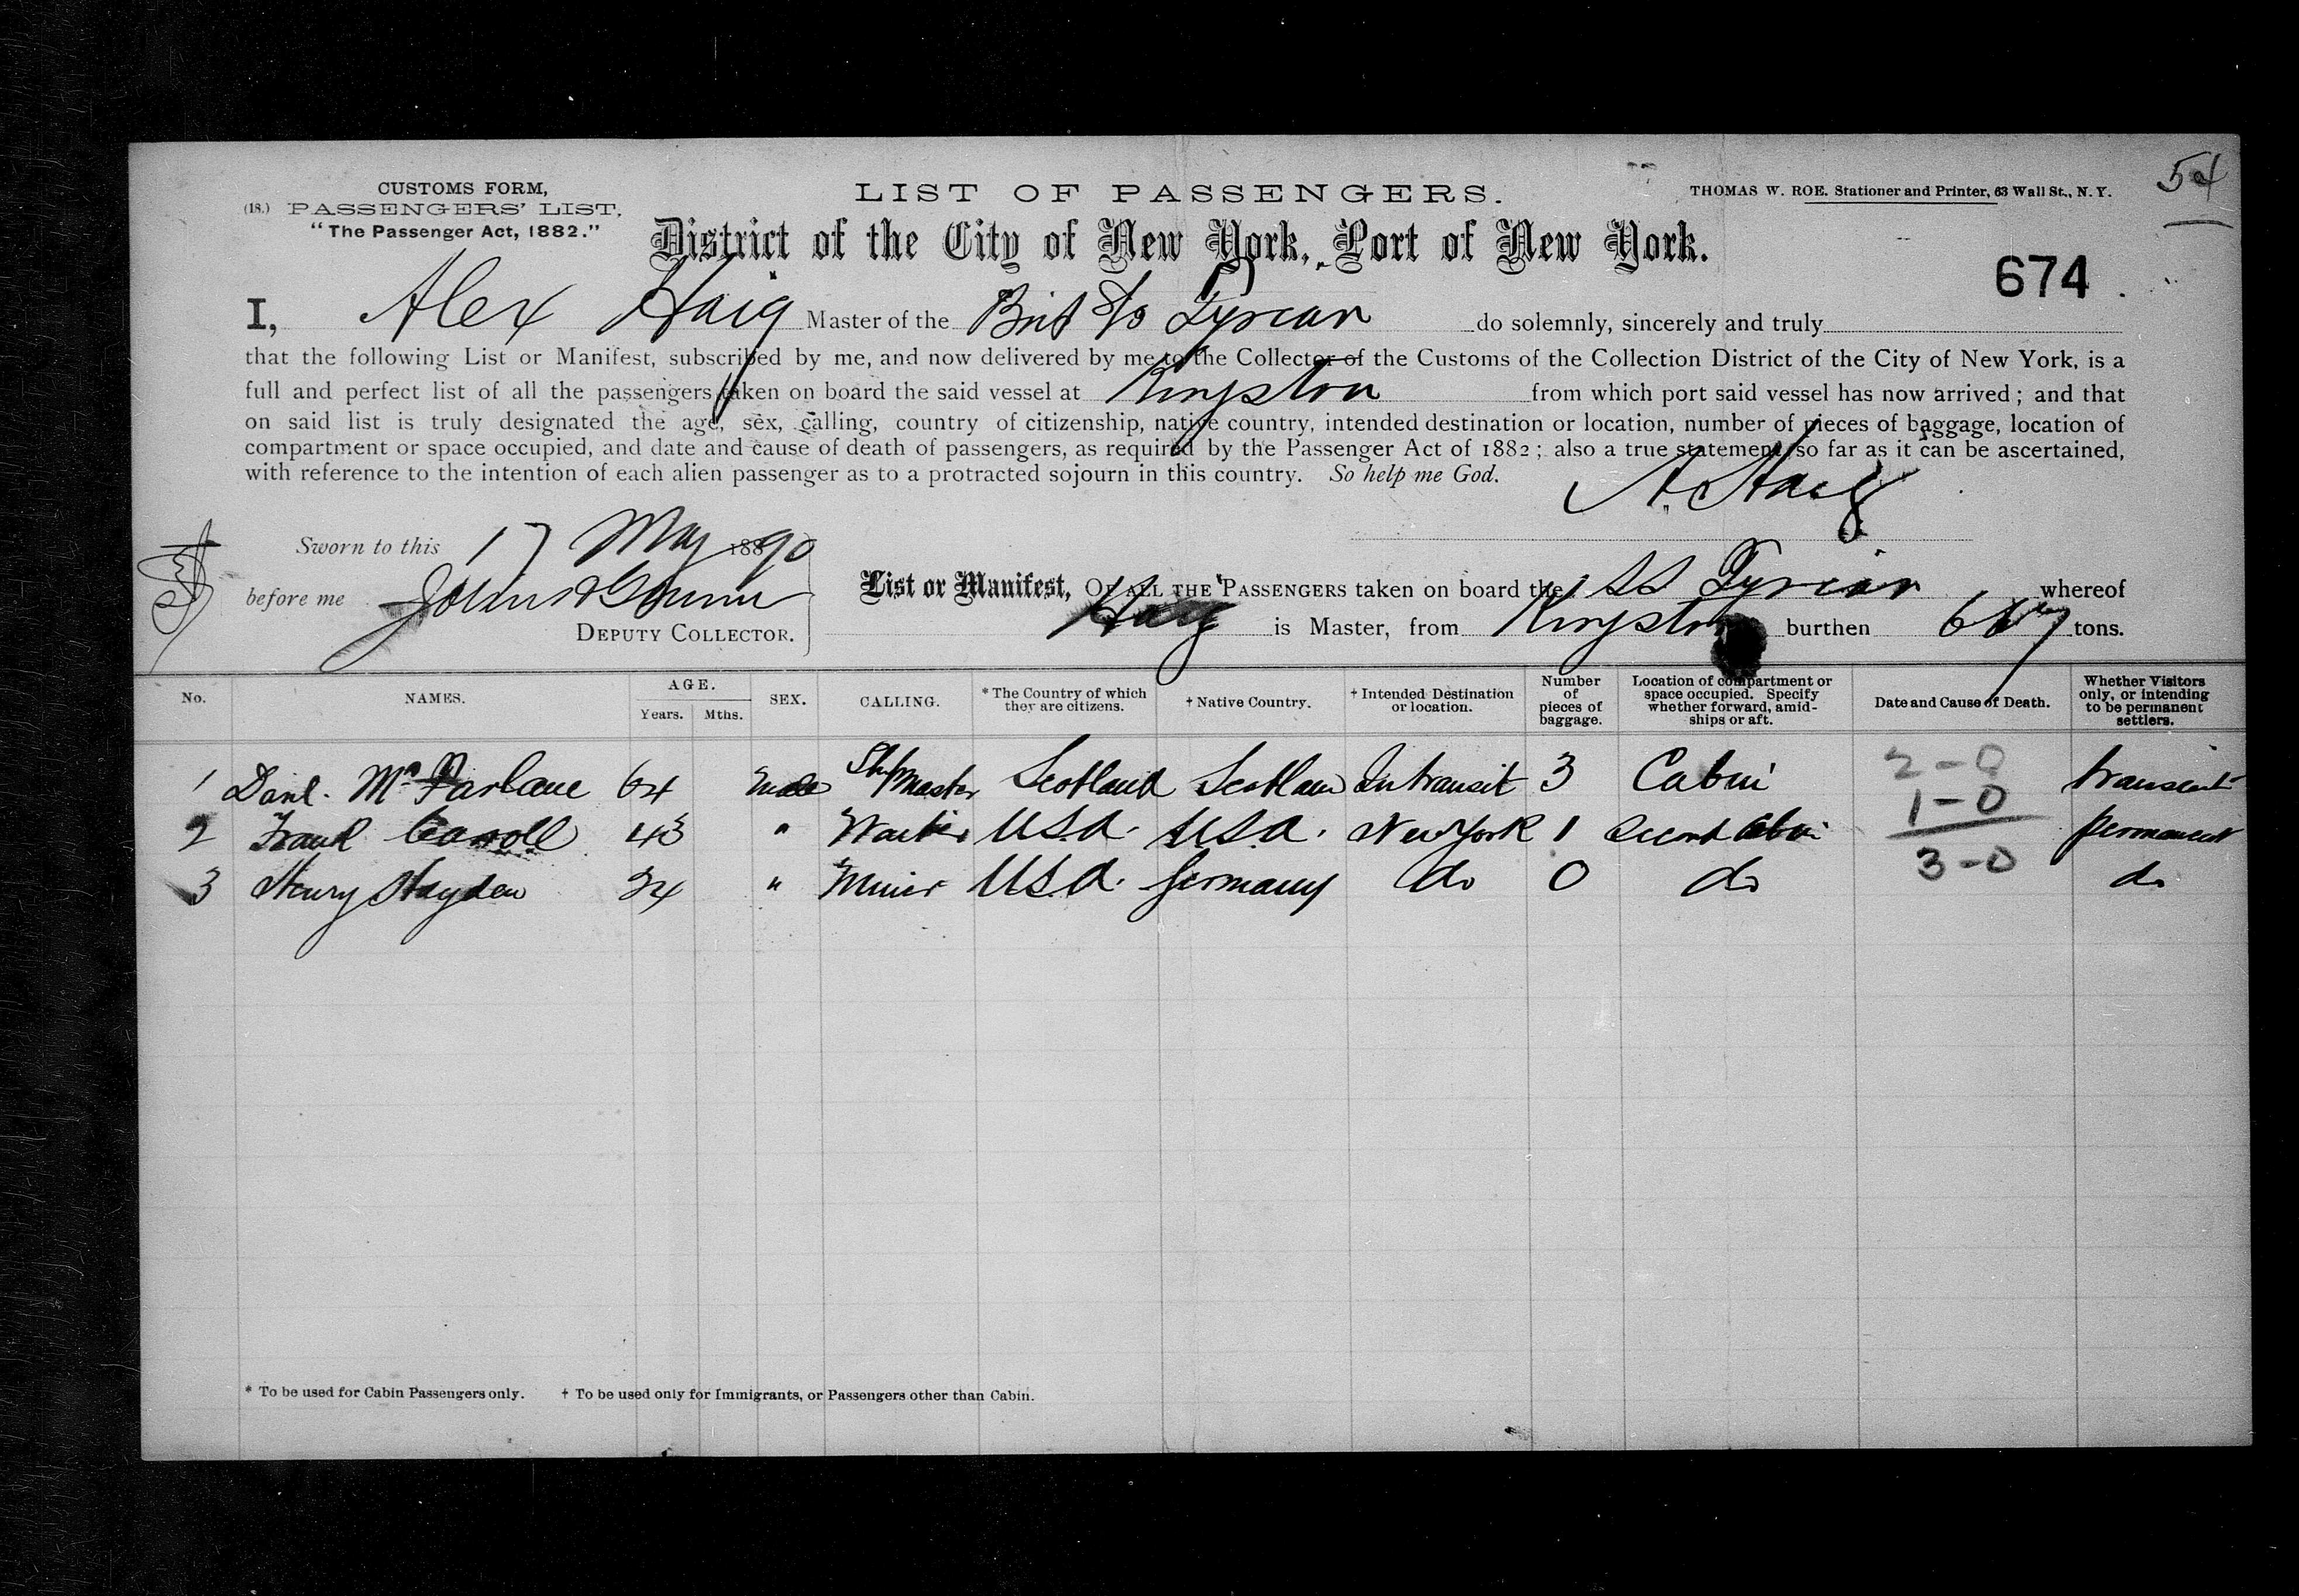 CUSTOMS FORM,
(18.) PASSENGERS' LIST,
"The Passenger Act, 1882."
LIST OF PASSENGERS.
THOMAS W. ROE. Stationer and Printer, 63 Wall St., N. Y.
54
District of the City of New York, Port of New York.
674
I, Alex Haig Master of the Brit S/S Tyrian do solemnly, sincerely and truly
that the following List or Manifest, subscribed by me, and now delivered by me to the Collector of the Customs of the Collection District of the City of New York, is a
full and perfect list of all the passengers taken on board the said vessel at Kingston from which port said vessel has now arrived; and that
on said list is truly designated the age, sex, calling, country of citizenship, native country, intended destination or location, number of pieces of baggage, location of
compartment or space occupied, and date and cause of death of passengers, as required by the Passenger Act of 1882; also a true statement, so far as it can be ascertained,
with reference to the intention of each alien passenger as to a protracted sojourn in this country. So help me God.
A. Haig
Sworn to this 17 May 1890
before me
DEPUTY COLLECTOR.
List or Manifest, OF ALL THE PASSENGERS taken on board the SS Tyrian whereof
Haig is Master, from Kingston burthen tons.
No. NAMES. AGE. Years. Mths. SEX. CALLING. * The Country of which they are citizens. † Native Country. † Intended Destination or location. Number of pieces of baggage. Location of compartment or space occupied. Specify whether forward, amidships or aft. Date and Cause of Death. Whether Visitors only, or intending to be permanent settlers.
1 Danl. McFarlane 64 Male Ship Master Scotland Scotland In transit 3 Cabin 2-0 transient
2 Frank Carroll 43 " Waiter U.S.A. U.S.A. New York 1 Second Cabin 1-0 permanent
3 Henry Hayden 34 " Miner U.S.A. Germany do 0 do 3-0 do
* To be used for Cabin Passengers only. † To be used only for Immigrants, or Passengers other than Cabin.